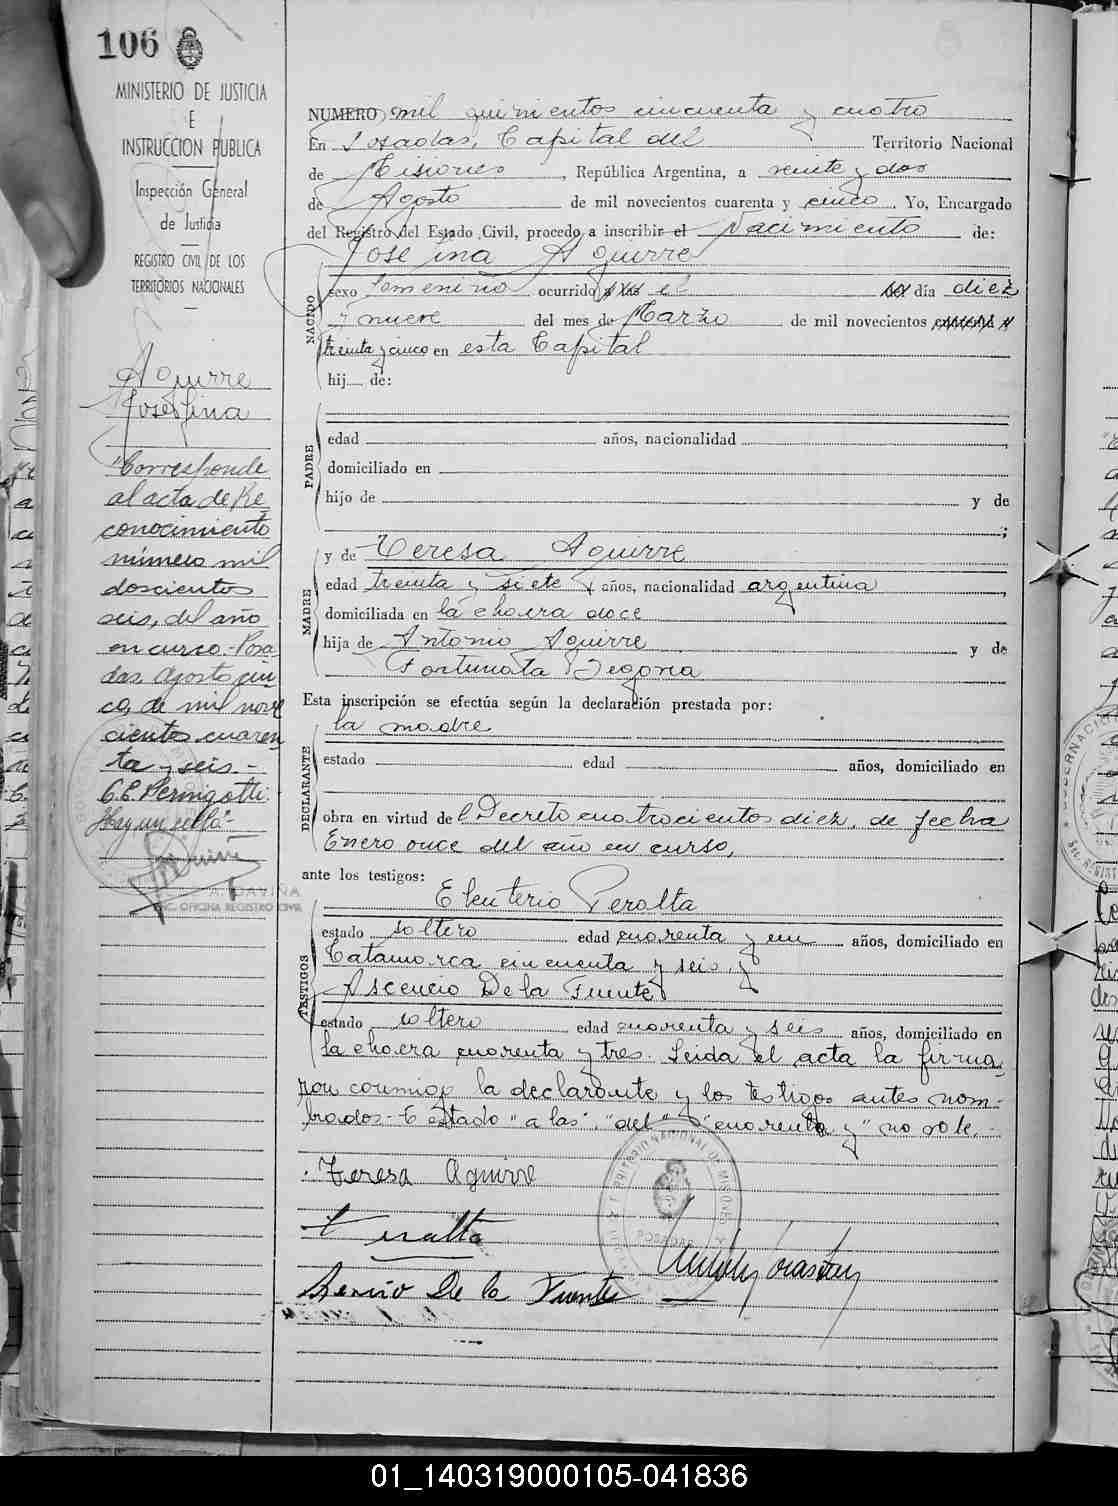 106
MINISTERIO DE JUSTICIA
E
INSTRUCCION PUBLICA
Inspección General
de Justicia
REGISTRO CIVIL DE LOS
TERRITORIOS NACIONALES
Aguirre
Josefina
"Corresponde
al acta de Re
conocimiento
número mil
doscientos
seis, del año
en curso.- Posa
das, Agosto cin
co, de mil nove
cientos cuaren
ta y seis.-
C.E. Pernigotti.
Hay un sello".
A. DAVIÑA
ENC. OFICINA REGISTRO CIVIL
NUMERO mil quinientos cincuenta y cuatro
En Posadas, Capital del Territorio Nacional
de Misiones, República Argentina, a veinte y dos
de Agosto de mil novecientos cuarenta y cinco. Yo, Encargado
del Registro del Estado Civil, procedo a inscribir el Nacimiento de:
Josefina Aguirre
NACIDO
sexo femenino ocurrido a las el del día diez
y nueve del mes de Marzo de mil novecientos cuarenta y
treinta y cinco en esta Capital
hij de:
PADRE
edad años, nacionalidad
domiciliado en
hijo de y de
;
MADRE
y de Teresa Aguirre
edad treinta y siete años, nacionalidad argentina
domiciliada en la chacra doce
hija de Antonio Aguirre y de
Fortunata Segovia
Esta inscripción se efectúa según la declaración prestada por:
la madre
DECLARANTE
estado edad años, domiciliado en
obra en virtud del Decreto cuatrocientos diez, de fecha
Enero once del año en curso,
ante los testigos:
Eleuterio Peralta
TESTIGOS
estado soltero edad cuarenta y un años, domiciliado en
Catamarca cincuenta y seis, y
Ascencio De la Fuente
estado soltero edad cuarenta y seis años, domiciliado en
la chacra cuarenta y tres. Leida el acta la firma
ron conmigo la declarante y los testigos antes nom-
brados.- Testado "a las", "del" "cuarenta y" no vale.-
Teresa Aguirre
TERRITORIO NACIONAL DE MISIONES
POSADAS
E Peralta
De la Fuente
01_140319000105-041836